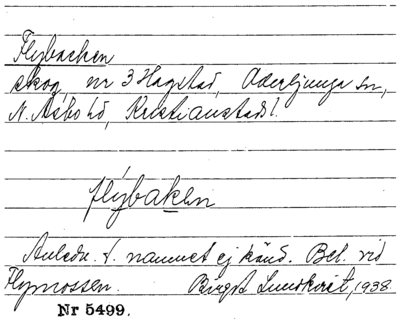 Flybacken
skog, nr 3 Hagstad, Oderljunga sn,
N. Åsbo hd, Kristianstads l.
flýbaken
Anledn. t. namnet ej känd. Bel. vid
Flymossen. Birgit Lundkvist, 1938
Nr 5499.